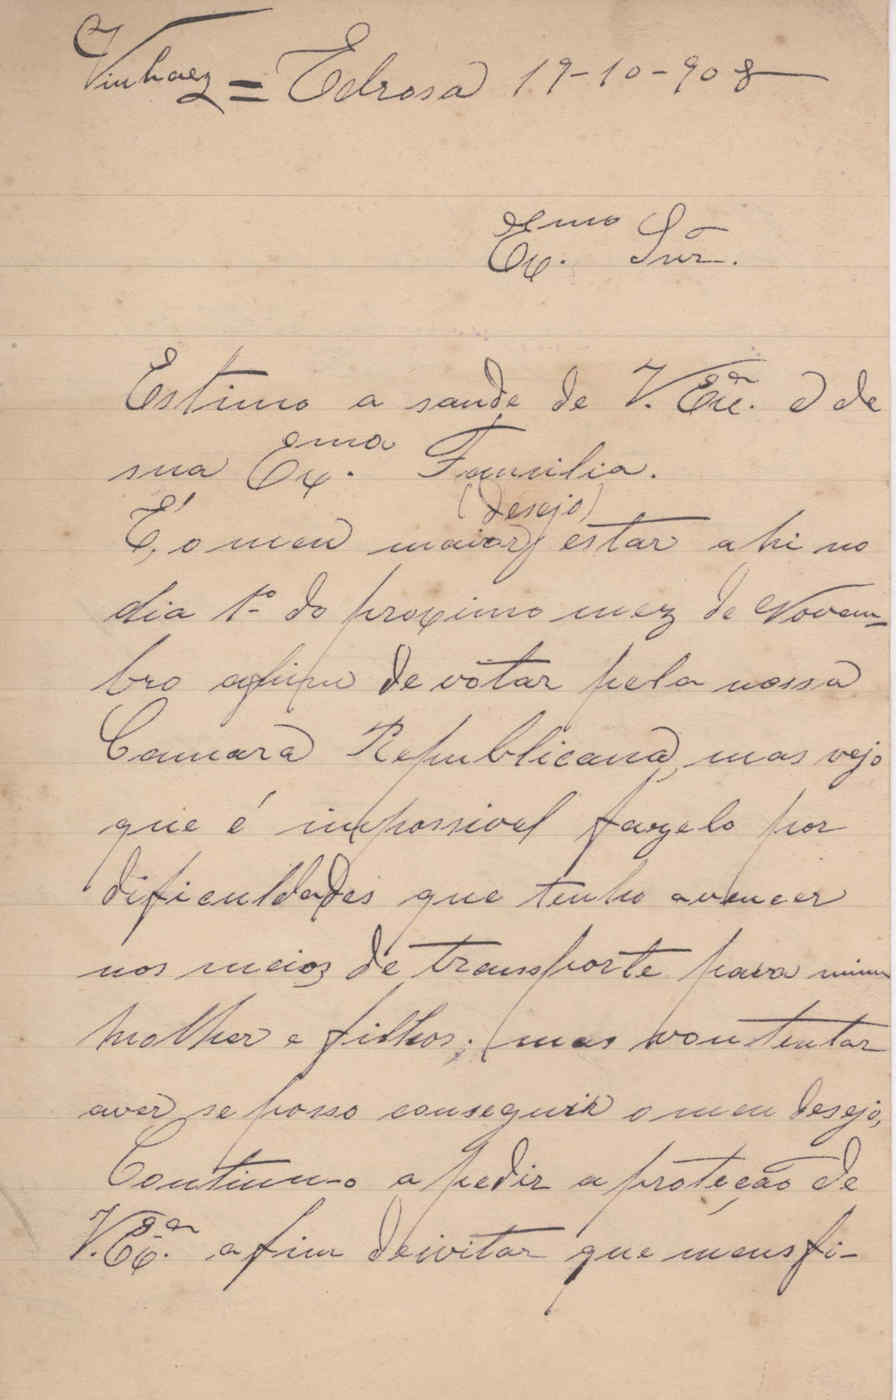 Vinhaes = Edrosa 19-10-908
Ex.mo Snr.
Estimo a saude de V. Ex.ª e de
sua Ex.ma Familia.
(desejo)
É, o meu maior estar ahi no
dia 1.º do proximo mez de Novem-
bro afim de votar pela nossa
Camara Republicana, mas vejo
que é impossivel fazelo por
dificuldades que tenho avencer
nos meios de transporte para minha
molher e filhos; mas vou tentar
aver se posso conseguir o meu desejo,
Continu-o a pedir a proteção de
V. Ex.ª a fim deivitar que meus fi-